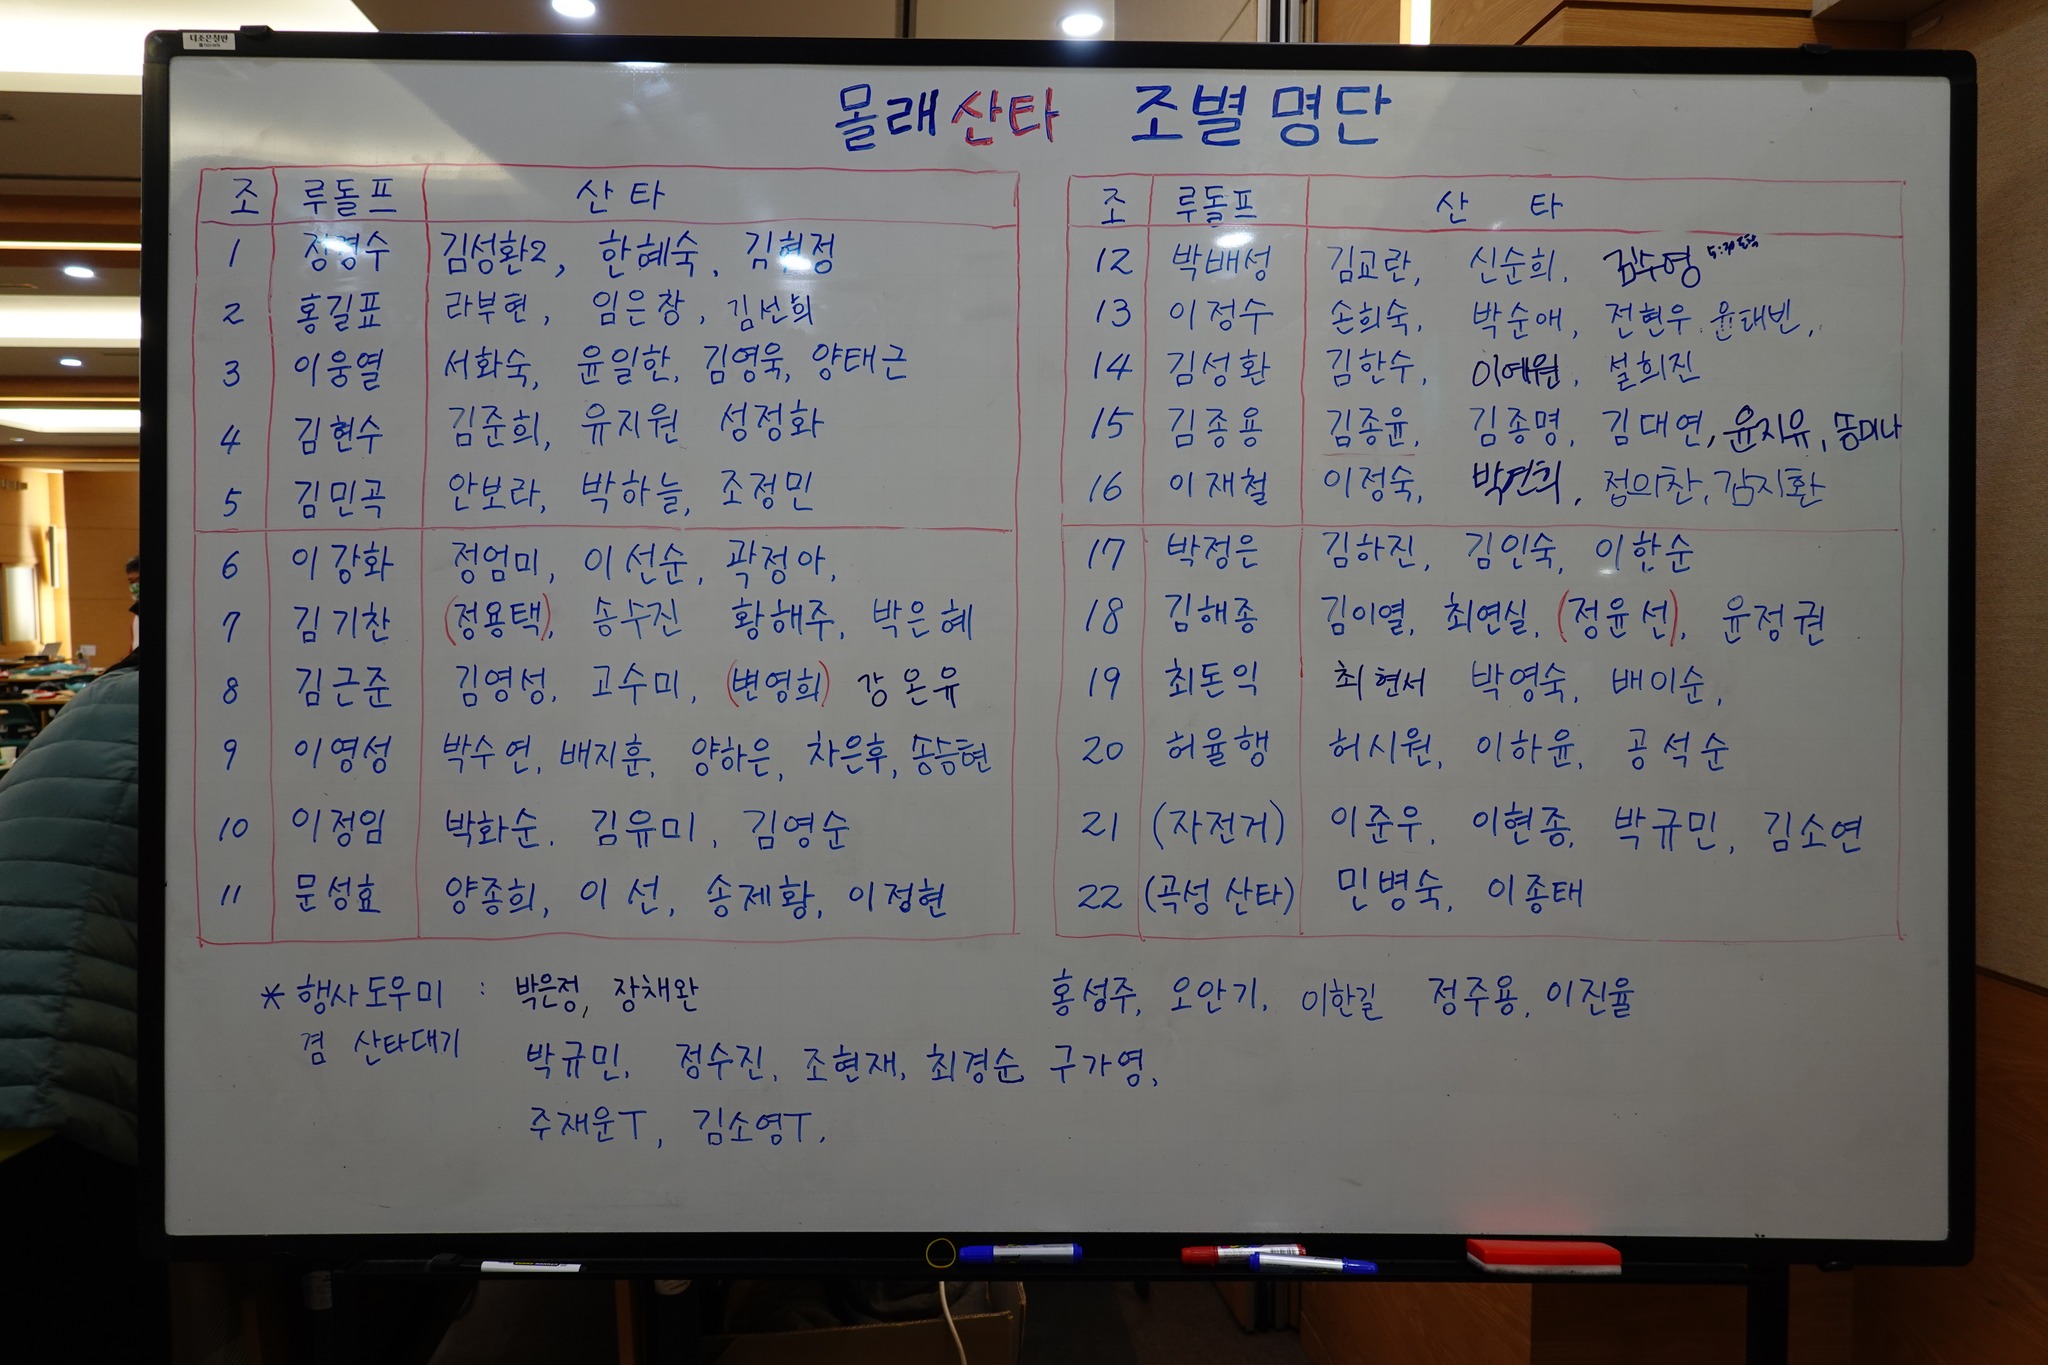 더조은칠판
몰래산타 조별 명단
조 루돌프 산타
1 정경수 김성환2, 한혜숙, 김현정
2 홍길표 라부현, 임은창, 김선희
3 이웅열 서화숙, 윤일한, 김영욱, 양태근
4 김현수 김준희, 유지원 성정화
5 김민곡 안보라, 박하늘, 조정민
6 이강화 정엄미, 이선순, 곽정아,
7 김기찬 (정용택), 송수진 황해주, 박은혜
8 김근준 김영성, 고수미, (변영희) 강온유
9 이영성 박수연, 배지훈, 양하은, 차은후, 송승현
10 이정임 박화순, 김유미, 김영순
11 문성효 양종희, 이선, 송제황, 이정현
조 루돌프 산 타
12 박배성 김교란, 신순희, 김수영
13 이정수 손희숙, 박순애, 전현우 윤태빈,
14 김성환 김한수, 이예원, 설희진
15 김종용 김종윤, 김종명, 김대연, 윤지유,
16 이재철 이정숙, 박연희, 정의찬, 김지환
17 박정은 김하진, 김인숙, 이한순
18 김해종 김이열, 최연실, (정윤선), 윤정권
19 최돈익 최현서 박영숙, 배이순,
20 허율행 허시원, 이하윤, 공석순
21 (자전거) 이준우, 이현종, 박규민, 김소연
22 (곡성 산타) 민병숙, 이종태
* 행사도우미 : 박은정, 장채완
겸 산타대기 박규민, 정수진, 조현재, 최경순, 구가영,
주재운T, 김소영T.
홍성주, 오안기, 이한길 정주용, 이진율